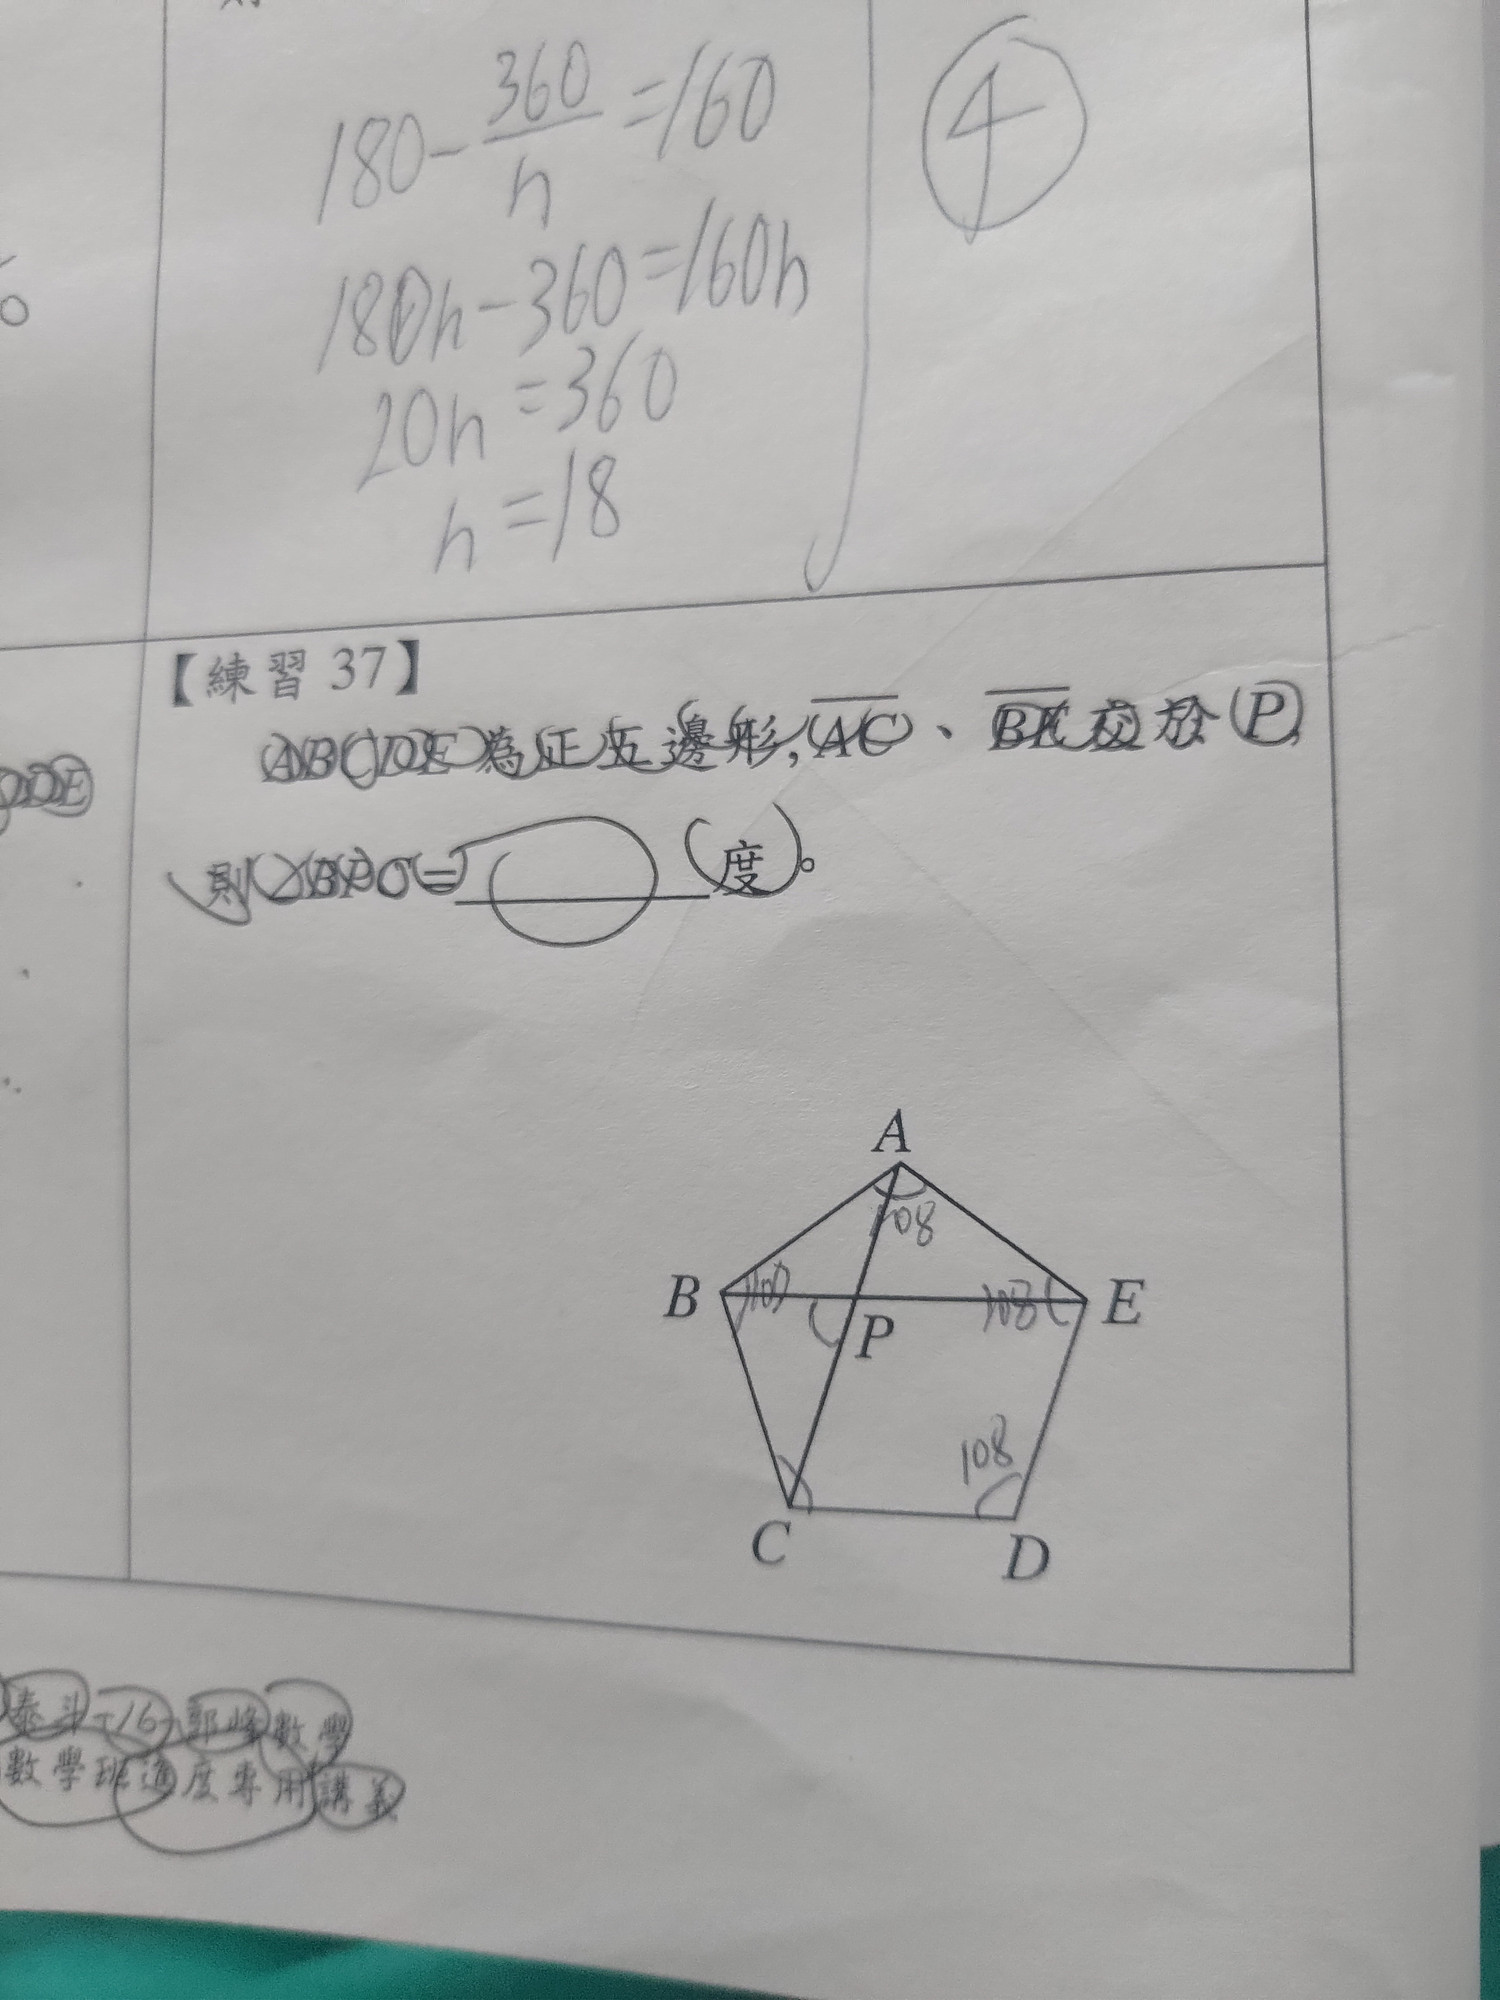 180-360/n=160
4
180n-360=160n
20n=360
n=18
【練習 37】
ABCDE為正五邊形,AC、BE交於P,
則∠BPC=______(度)。
A
108
B
108
108
E
P
108
C
D
泰斗-16-郭峰數學
數學班進度專用講義